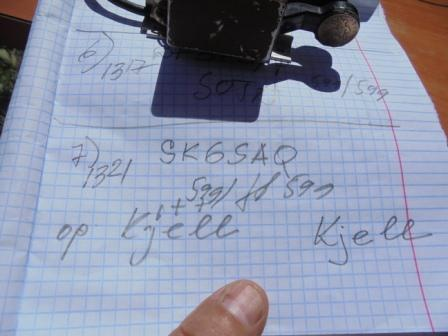 6) 1317
599/599
7) 1321 SK6SAQ
599/
599
op Kjell Kjell